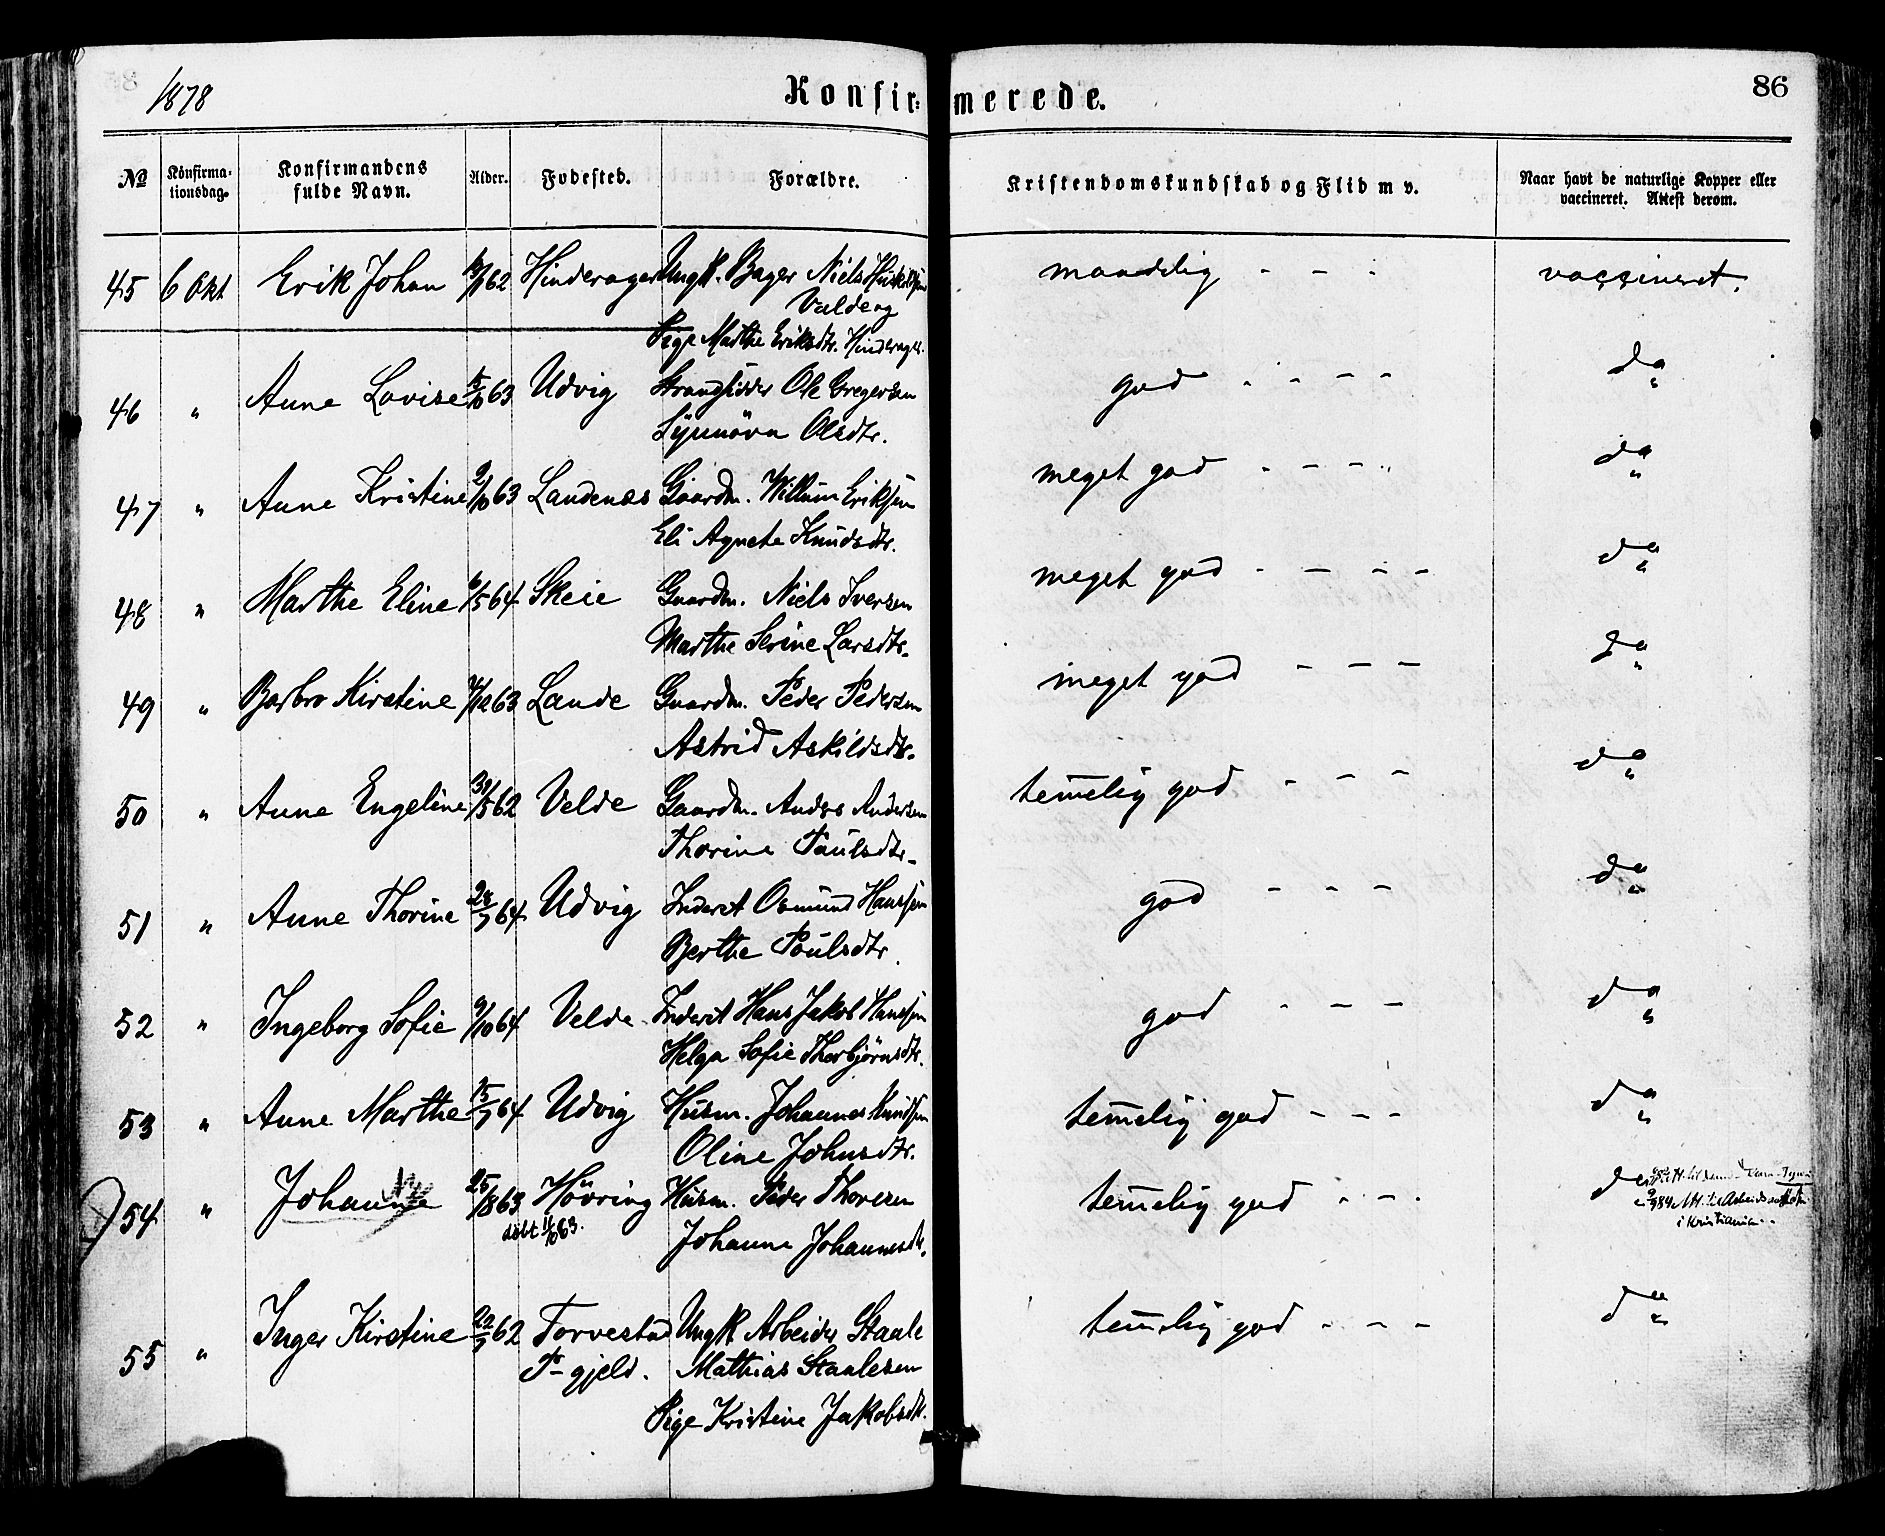 1878
Konfirmerede.
86
No
Konfirmationsdag.
Konfirmandens fulde Navn.
Alder.
Fødested.
Forældre.
Kristendomskundskab og Flid m v.
Naar havt de naturlige Kopper eller vaccineret. Attest derom.
45 6 Okt Erik Johan 62 Hinderager Ungk. Bager Niels maadelig - - - vaccineret.
Valde og
Pige Marthe Eriksdtr. Hinderager.
46 " Anne Lovise 63 Udvig Strandsidder Ole Gregersen god - - - - do "
Synnöva Olsdtr.
47 " Anne Kristine 2/10 63 Landenes Gaardm. Willum Eriksen meget god - - - - do "
Eli Agnete Knudsdtr.
48 " Marthe Eline 6/5 64 Skeie Gaardm. Niels Iversen meget god - - - - do "
Marthe Serine Larsdtr.
49 " Barbro Kirstine 63 Lande Gaardm. Peder Pedersen meget god - - - do "
Astrid Askildsdtr.
50 " Anne Engeline 30/5 62 Velde Gaardm. Anders Andersen temelig god - - - do "
Thorine Paulsdtr.
51 " Anne Thorine 28/7 64 Udvig Inderst Osmund Hanssen god - - - do "
Berthe Poulsdtr.
52 " Ingeborg Sofie 9/10 64 Velde Inderst Hans Jakob Hanssen god - - - do "
Helga Sofie Thorbjörnsdtr.
53 " Anne Marthe 15/7 64 Udvig Husm. Johannes Knudsen temelig god - - - do "
Oline Johnsdtr.
54 " Johanne 25/8 63 Hövring Husm. Peder Thoresen temelig god - - - do
döbt 11/10 63. Johanne Johannesdtr.
til Arbeidsanstalten
i Kristiania.
55 " Inger Kirstine 22/7 62 Torvestad Ungk Arbeider Staale temelig god - - - do "
P-gjeld. Mathias Staalesen
Pige Kristine Jakobsdtr.